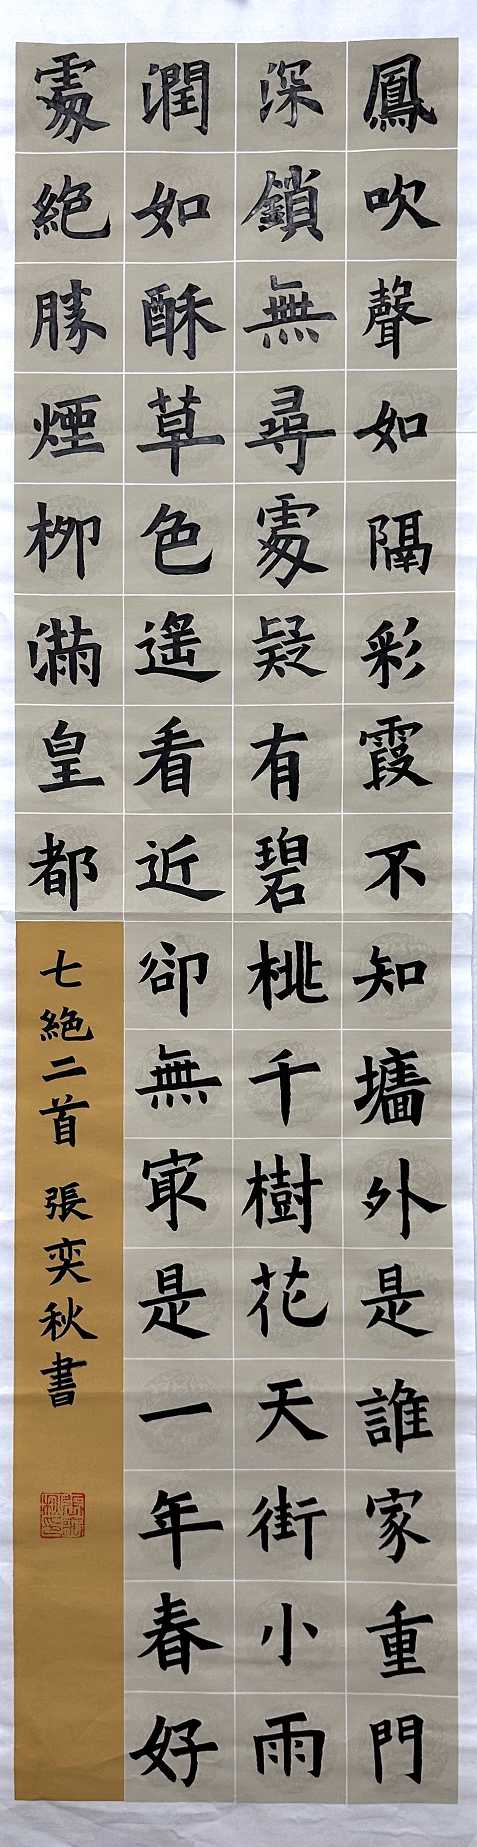 鳳吹聲如隔彩霞不知墻外是誰家重門
深鎖無尋處疑有碧桃千樹花天街小雨
潤如酥草色遙看近卻無冣是一年春好
處絕勝煙柳滿皇都
七絕二首 張奕秋書